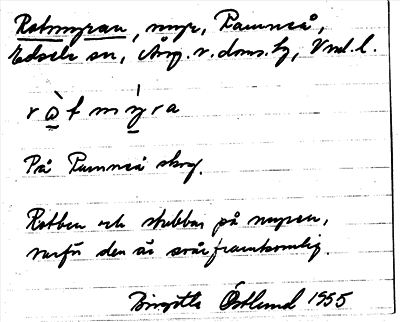 Rotmyran, myr, Ramnså,
Edsele sn, Ång. v. doms. hg, Vnl. l.
r ò t m ý r a
På Ramnså skog.
Rötter och stubbar på myren,
varför den är svår framkomlig.
Birgitta Östlund 1955